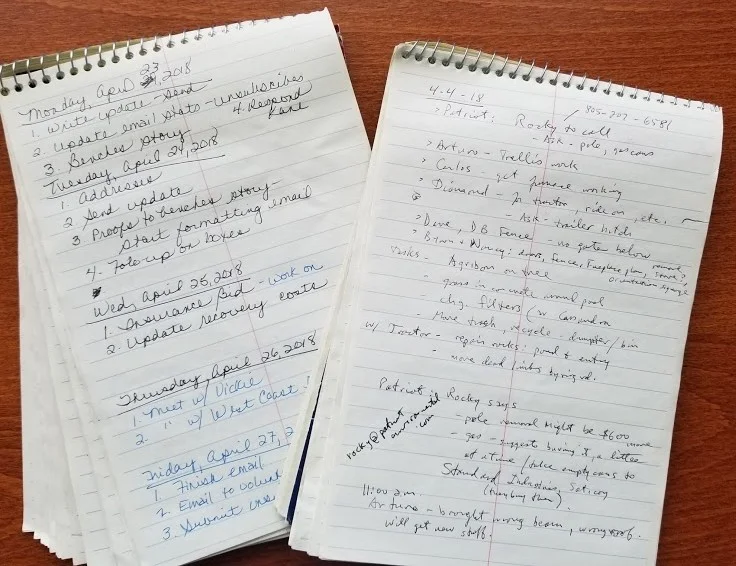 Monday, April 23, 2018
1. Write update - Send
2. Update email stats - unsubscribes
4. Respond
Kane
3. Benches story
Tuesday, April 24, 2018
1. Addresses
2 Send update
3 Proofs to benches story -
Start formatting email
4. Fole-up on boxes
Wed, April 25, 2018
1. Insurance Bid - work on
2. Update recovery costs
Thursday, April 26, 2018
1. Meet w/ Vickie
2. " w/ West Coast
Friday, April 27, 2
1. Finish email
2. Email to volun
3. Submit
4-4-18
805-207-6581
> Patriot: Rocky to call
- Ask - pole, gas cans
> Arturo - Trellis work
> Carlos - get furnace working
> Diamond - tractor, ride on, etc.
- Ask - trailer hitch
> Dave, DB Fence - no gate below
> fence, Fireplace plan,
Tasks - Agribon on tree
- grass in
- chg. filters (w Cassandra
- More trash, recycle - dumpster / bin
w/ Tractor - repair rocks: pond & entry
- more dead limbs by ring rd.
Patriot: Rocky says
rocky@patriot
environmental
.com
- pole removal might be $600
- gas - suggests burning it, a little more
at a time / take empty cans to
Standard Industries, Saticoy
(they buy them).
11:00 a.m.
Arturo - brought wrong beam, wrong roof.
Will get new stuff.